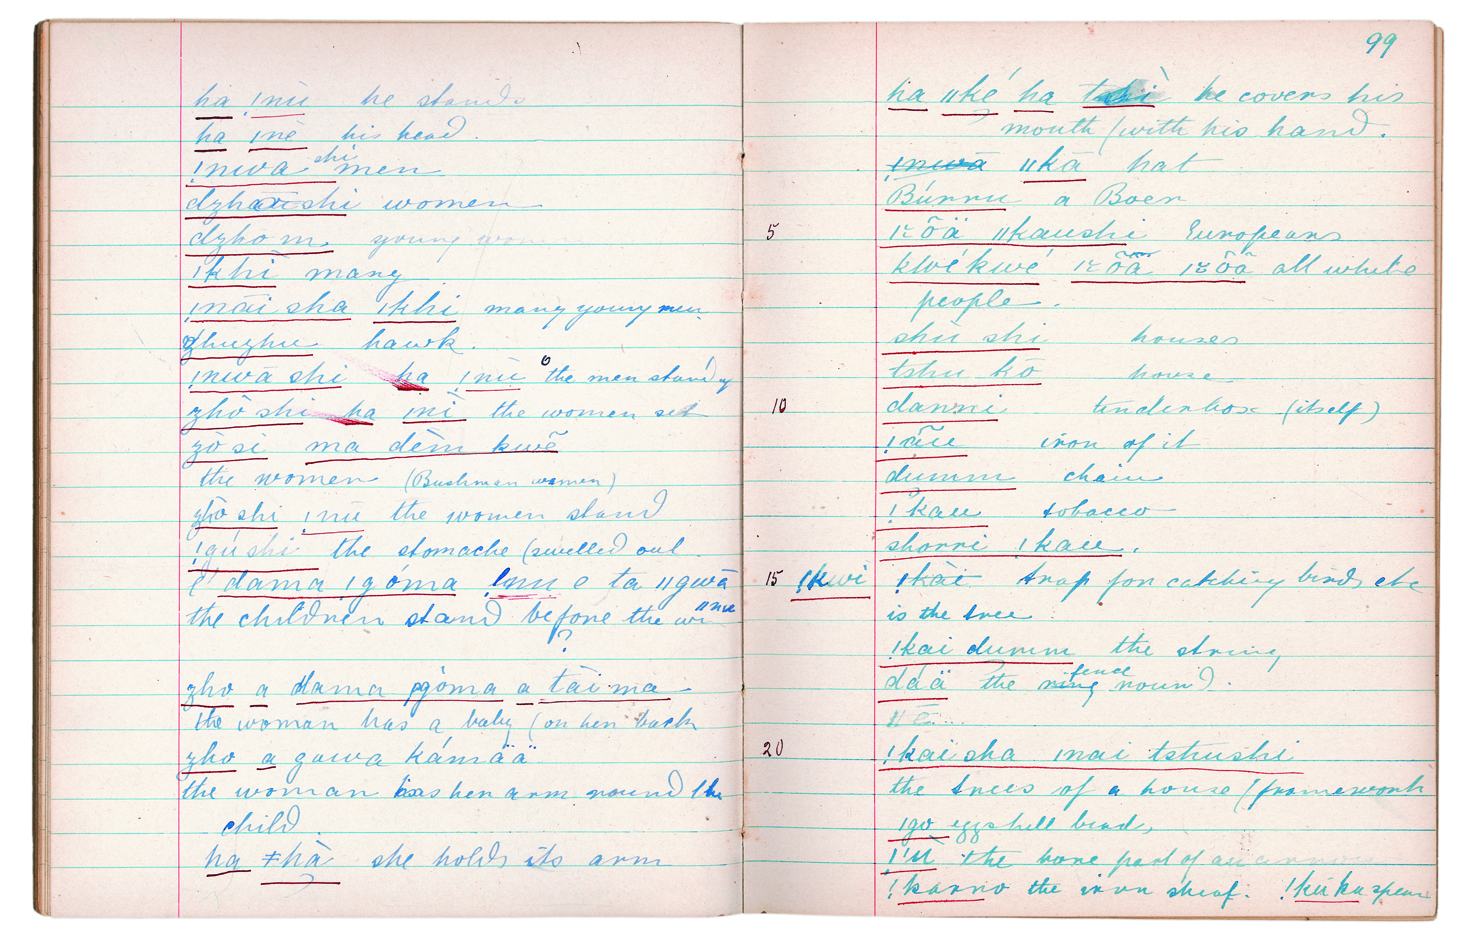 ha ǃnù he stands
ha ıné his head.
ǃnwa shi men
dzhau shi women
dzhom young
ǃkhi many
ınãi sha ıkhi many young men
zhuzhu hawk.
ǃnwā shi ha ǃnù the men stand up
zhò shi ha ını the women sit
zo si ma dèm kwẽ
the women (Bushman women)
zhò shi ǃnū the women stand
ǃgúshi the stomache (swelled out
é dama ǃgóma ǃnu e ta ǁgwā
the children stand before the ǁnu
?
zho a dama góma a tāima
the woman has a baby (on her back
zho a gawa kámää
the woman has her arm round the
child.
ha ǂhà she holds its arm
99
ha ǁké ha tshì he covers his
mouth (with his hand.
ǃnwā ǁkā hat
Búrru a Boer
5 ǁkaushi Europeans
kwékwé all white
people.
shù shi houses
tshu kō house
10 danni tinderbox (itself)
ǃãu iron of it
dumm chain
ǃkau tobacco
shorri ǃkau.
15 ǃkwi ǃkài trap for catching birds etc
is the tree
ǃkai dumm the string
dáä the ring fence round.
20 ǃkai sha ınai tshushi
the trees of a house (framework
ıgo eggshell beads
ǃ'ù the bone part of an arrow
ǃkarro the iron sheaf. ǃkúku spear